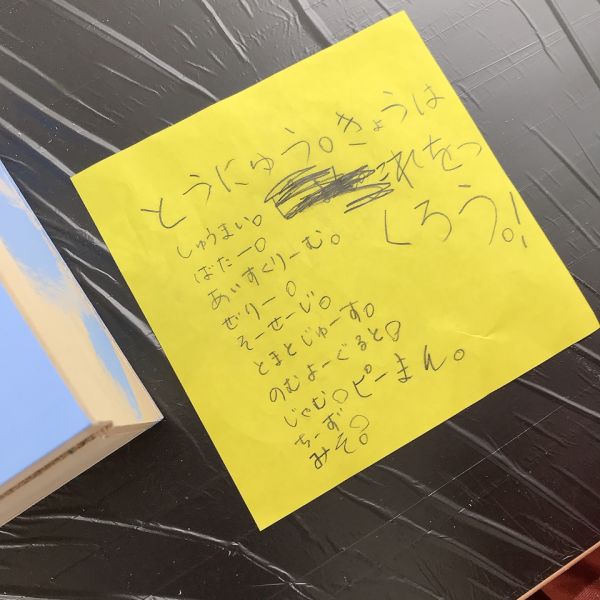 とうにゅう。きょうは
これをつ
くろう。!
しゅうまい。
ばたー。
あいすくりーむ。
ぜりー。
そーせーじ。
とまとじゅーす。
のむよーぐると。
じゃむ。ピーまん。
ちーず
みそ。